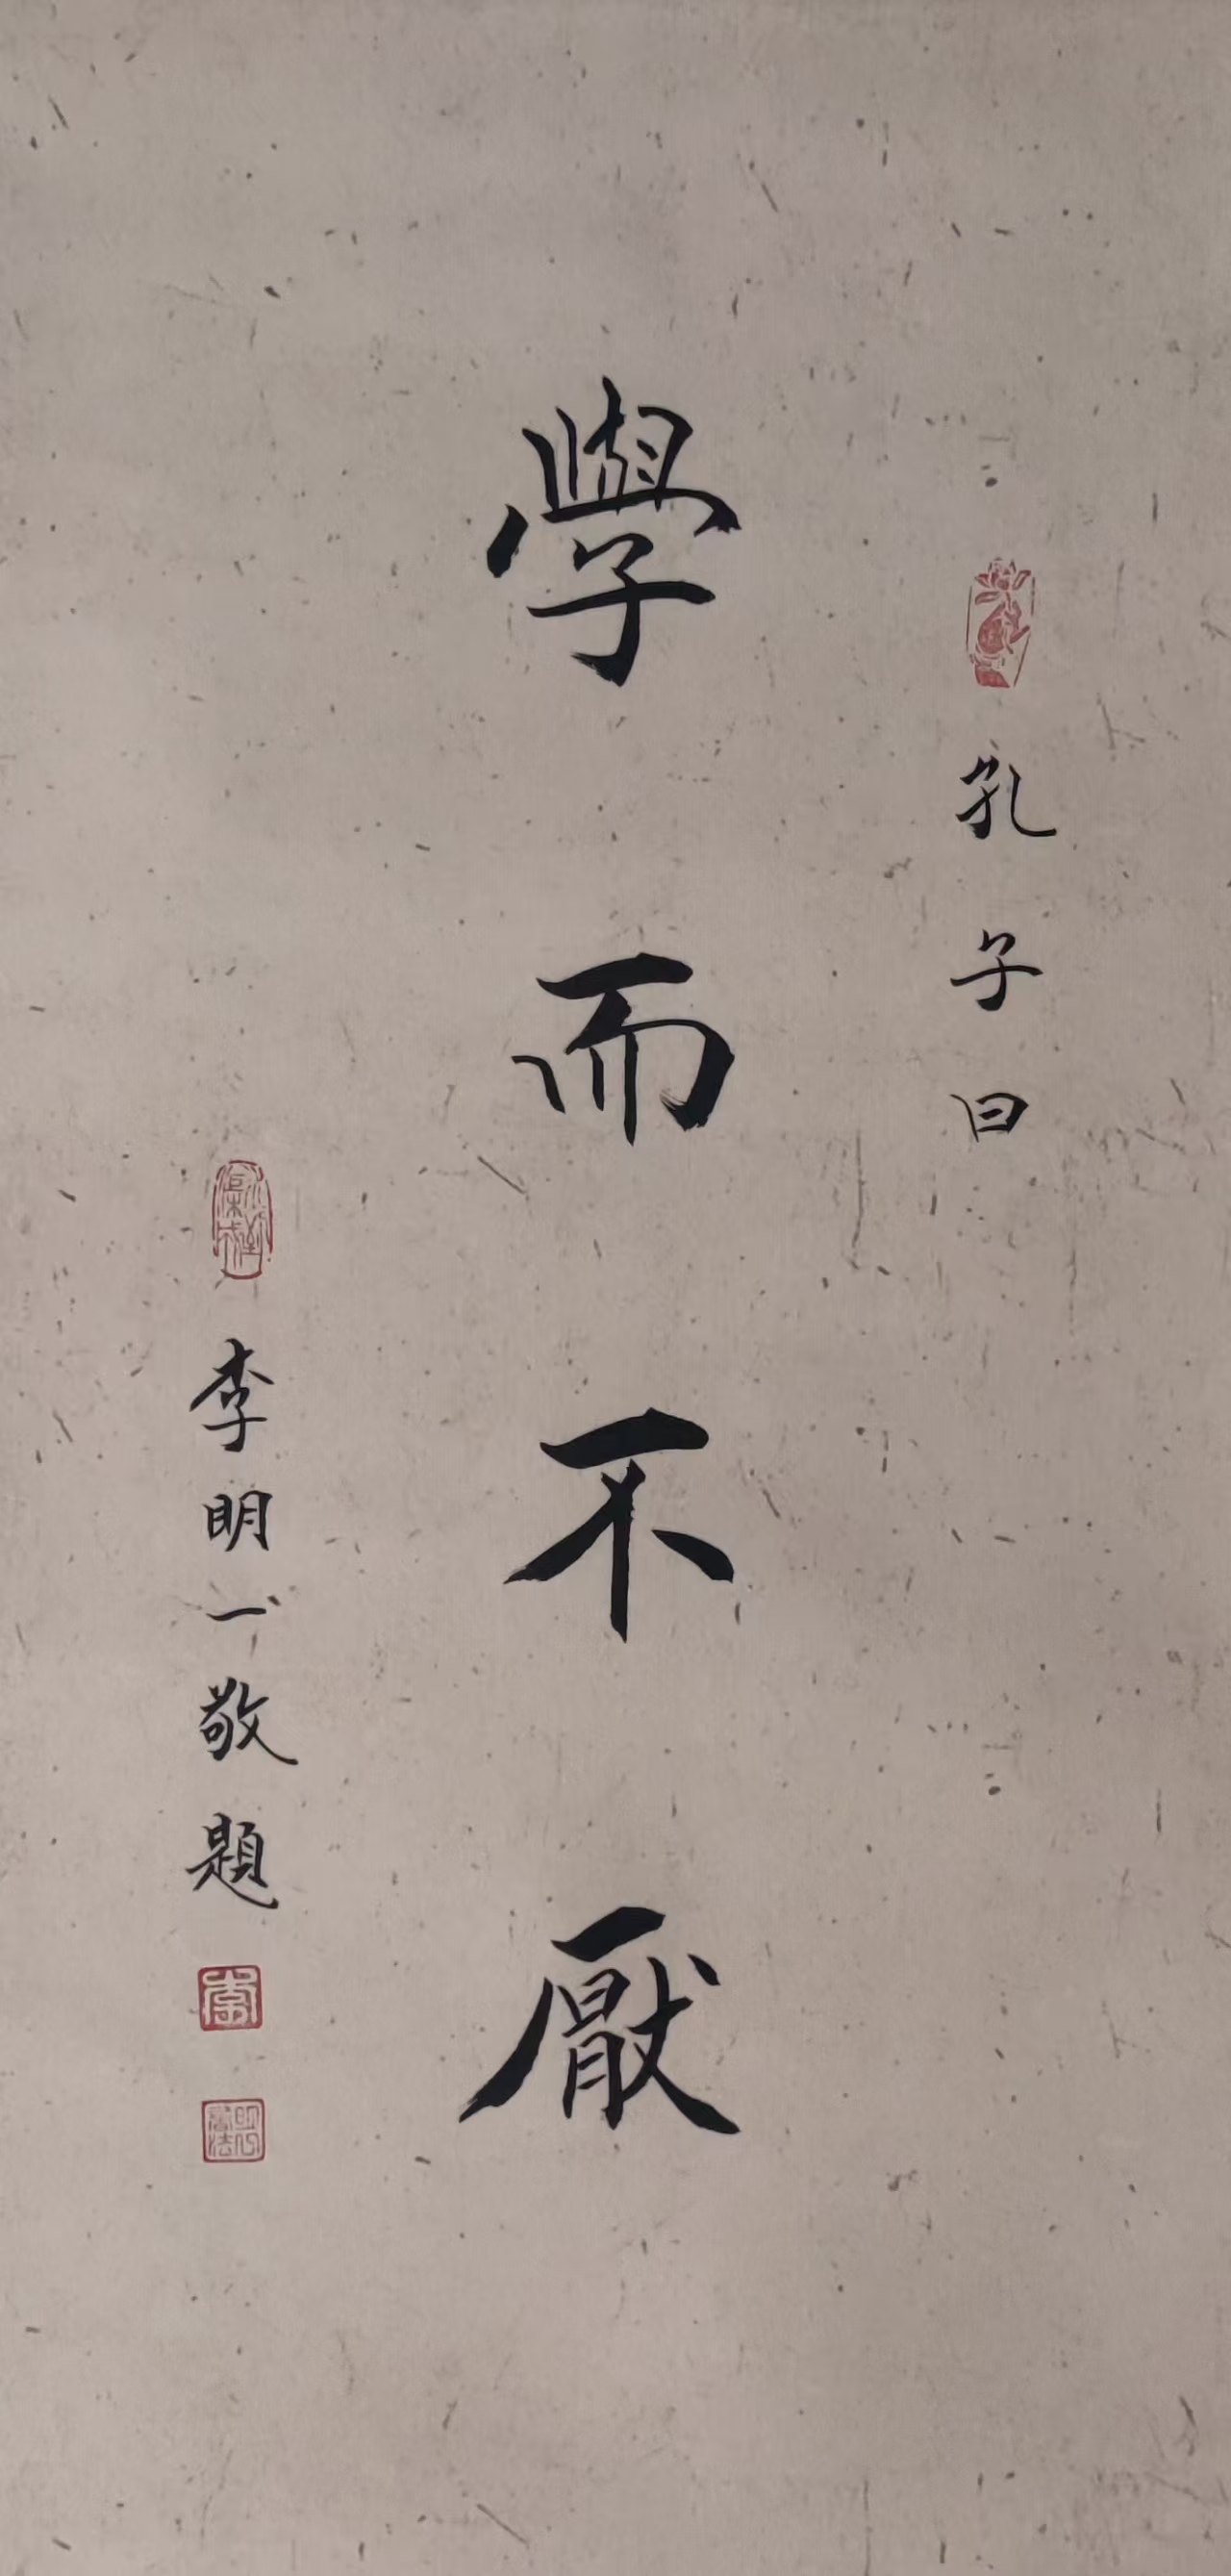 孔子曰
學而不厭
李明一敬題